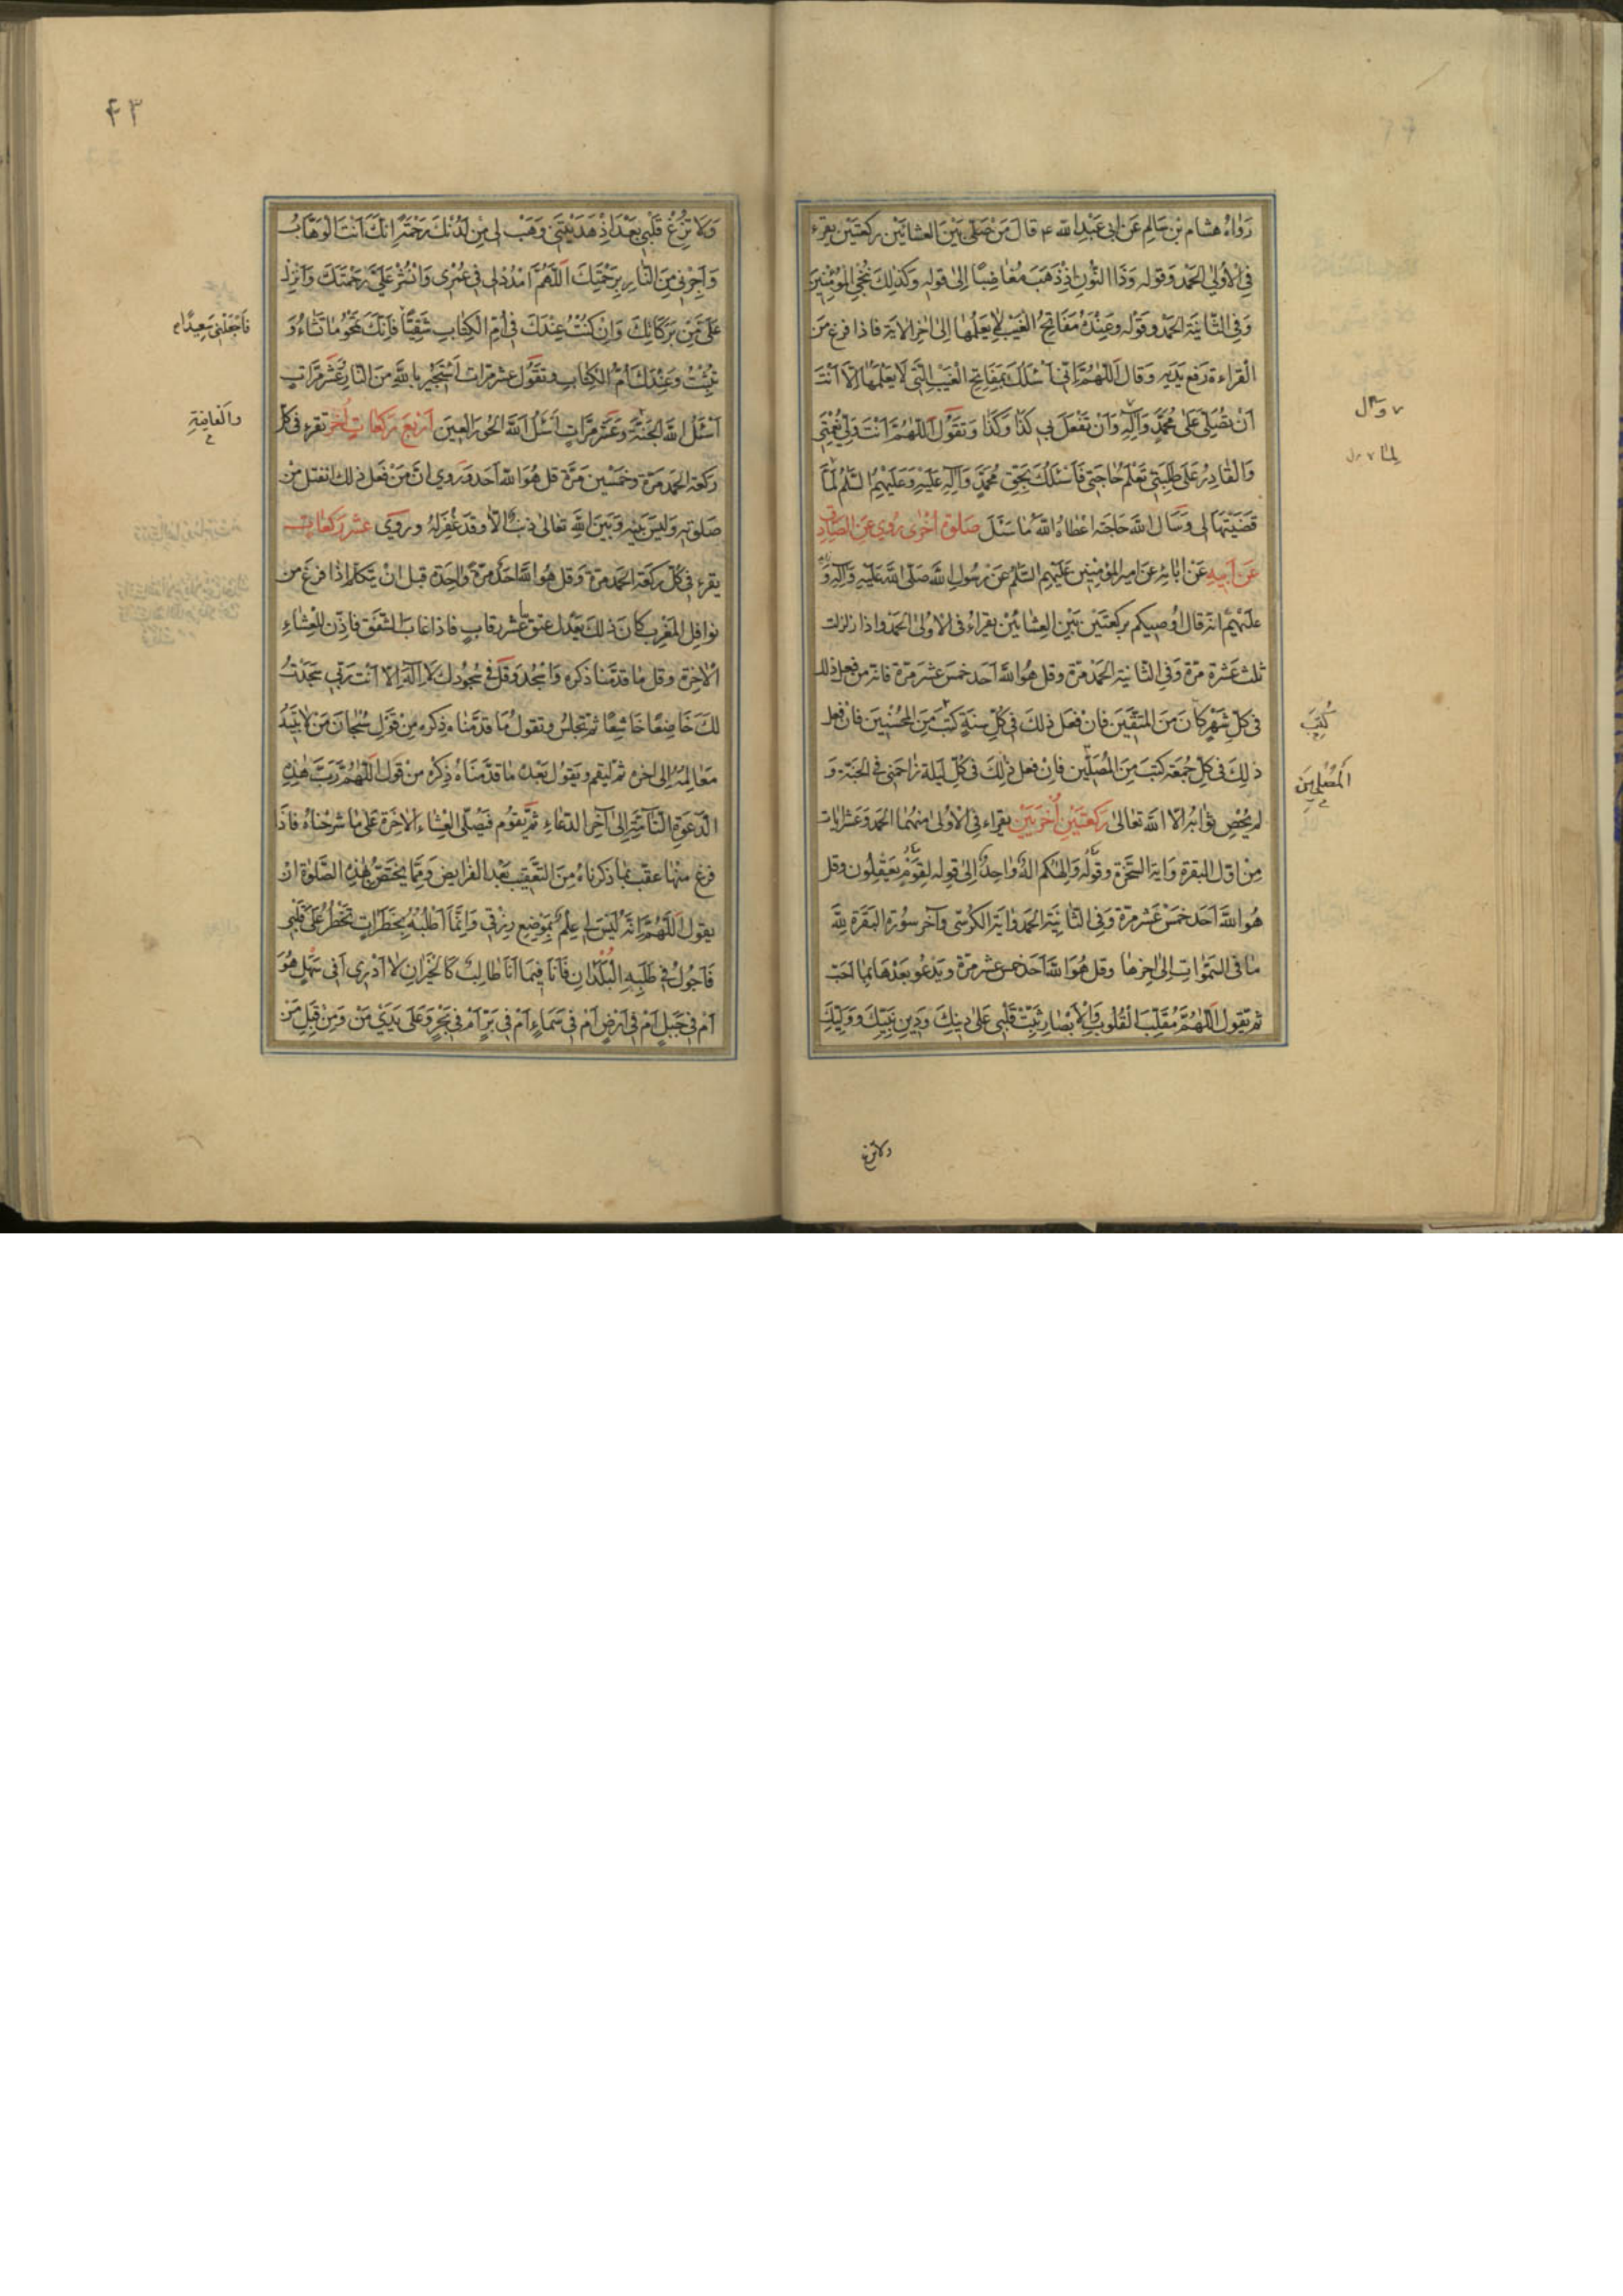 رَوٰاهُ هشام بن سٰالِم عَن ابى عَبْدِ اللّٰه ع قالَ مَنْ صَلّى بَيْنَ العشائَيْنِ ركعَتَيْن يقرء
فِى الْأُولىٰ الحَمْد وَقوله وَذَا النُّونِ إِذْ ذَهَبَ مُغٰاضِبًا إِلىٰ قولِهِ وَكَذٰلِكَ نُنْجِي المُؤْمِنِينَ
وَفِى الثّانيَةِ الحَمْد وقَوْله وَعِنْدَهُ مَفَاتِحُ الْغَيْبِ لاٰ يَعْلَمُهٰا إِلىٰ اٰخِرِ الاٰية فاذا فرغ مِنَ
الْقراءة رَفع يَدَيهِ وَقالَ اَللّٰهُمَّ اِنّى اَسْئلُكَ بِمَفٰاتِحِ الْغَيْبِ الَّتى لاٰ يَعْلَمُهٰا إِلّاٰ اَنْتَ
اَنْ تُصَلِّىَ عَلىٰ مُحَمَّدٍ وَآلِهِ وَاَنْ تَفْعَلَ بى كَذٰا وَكَذٰا وَتَقُوُلُ اَللّٰهُمَّ اَنْتَ وَلِىُّ نِعْمَتى
وَالْقٰادِرُ عَلىٰ طَلِبَتى تَعْلَمُ حٰاجَتى فَاَسْئَلُكَ بِحَقِّ مُحَمَّدٍ وَآلِهِ عَلَيْهِ وَعَلَيْهِمُ السَّلٰمُ لَمّٰا
قَضَيْتَهٰا لى وَسَأَلَ اللّٰهَ حٰاجَتَه اَعْطاهُ اللّٰهُ مٰا سَئَلَ صَلوٰة اُخْرٰى رُوِىَ عَنِ الصّٰادِق
عَنْ اَبيهِ عَنْ اٰبٰائِهِ عَنْ اَميرِ المُؤْمِنينَ عَلَيْهِمُ السَّلٰمُ عَنْ رَسُولِ اللّٰهِ صَلّى اللّٰهُ عَلَيْهِ وَآلِهِ وَ
عَلَيْهِمْ انّه قالَ اُوصيكم بركعَتَيْنِ بَيْنَ العِشٰائَيْنِ يقراءُ فى الاُولىٰ الحَمْد واذا زلزلت
ثلث عَشْرة مَرّة وَفِى الثّانية الحَمْد مَرّة وقل هُوَ اللّٰهُ اَحَد خمسَ عشَر مَرّة فانه من فعل ذلك
فى كلّ شَهْرٍ كٰانَ مِنَ المتَّقينَ فَاِنْ فعَلَ ذٰلِكَ فى كُلِّ سنَةٍ كتبَ مِنَ المُحْسِنينَ فاِنْ فعل
ذٰلِكَ فى كلِّ جُمعَة كتبَ مِنَ المُصَلّين فاِنْ فعل ذٰلِكَ فى كُلِّ لَيلَة زٰاحَمَنى فى الجنّة وَ
لم يُحْصِ ثوٰابَهُ الاّ اللّٰه تعٰالىٰ رَكعَتَيْنِ اُخْرَيَيْنِ يقراء فى الْاُولىٰ منهُمَا الحَمْد وَعَشْر اٰيات
مِنْ اوّل البقرة وَاٰية السخرة وقولُه وَاِلٰهُكم الٰهٌ وٰاحِدٌ اِلىٰ قولِه لِقَوْمٍ يَعْقِلُون وقل
هُوَ اللّٰهُ اَحَد خَمْسَ عَشْر مَرّة وَفِى الثّٰانِيَةِ الحَمْد وٰاية الكُرْسِىّ وَآخر سُورَة البَقَرَة لِلّٰهِ
مٰا فى السَّمٰوٰاتِ اِلىٰ اٰخِرِهٰا وقل هُوَ اللّٰه اَحَد خمس عشر مَرّة وَيَدْعُو بَعْدَهٰا بِمٰا اَحَبّ
ثم تقول اَللّٰهُمَّ مُقَلِّبَ الْقُلُوبِ وَالْاَبْصٰارِ ثَبِّتْ قَلْبى عَلىٰ دينِكَ وَدينِ نَبِيِّكَ وَوَلِيِّكَ
كُتِبَ
اَلْمُصْلِحينَ
ولاتزغ
۴۳
وَلاٰ تُزِغْ قَلْبى بَعْدَ اِذْ هَدَيْتَنى وَهَبْ لى مِنْ لَدُنْكَ رَحْمَةً اِنَّكَ اَنْتَ الْوَهّٰابُ
وَاَجِرْنى مِنَ النّٰارِ بِرَحْمَتِكَ اَللّٰهُمَّ امْدُدْ لى فى عُمْرى وَانْشُرْ عَلَىَّ رَحْمَتَكَ وَاَنْزِلْ
عَلَىَّ مِنْ بَرَكٰاتِكَ وَاِنْ كُنْتُ عِنْدَكَ فى اُمِّ الْكِتٰابِ شَقِيًّا فَاِنَّكَ تَمْحُو مٰا تَشٰاءُ وَ
تُثْبِتُ وَعِنْدَكَ اُمُّ الْكِتٰابِ وتَقُوُل عشر مَرّات اَسْتَجيرُ بِاللّٰهِ مِنَ النّٰارِ عَشْرَ مَرّاتٍ
اَسْئَلُ اللّٰهَ الْجَنَّةَ وعَشْرَ مَرّٰاتٍ اَسْئَلُ اللّٰهَ الْحُورَ الْعِينَ اَرْبَع رَكعٰات اُخَر تقرء فى كلّ
ركعة الحَمْد مَرّة وخَمْسين مَرَّة قل هُوَ اللّٰه اَحَد وَرُوِى انّ مَنْ فَعَل ذلك انفتل مِنْ
صَلوٰته وَليسَ بَينه وَبَينَ اللّٰهِ تعٰالىٰ ذنب الاّ وَقَد غُفِرَ لَهُ ورُوِىَ عشْر رَكعٰات
يقرء فى كلّ ركعَة الحَمد مَرّة وقل هُوَ اللّٰه اَحَد مَرّة وٰاحِدَة قبل انْ يتكلّم اذا فرغ من
نوافِلِ المَغْرِب كٰانَ ذٰلِكَ يَعْدِل عتق عَشْر رقابٍ فاذا غٰابَ الشّفق فاذّن لِلْعِشٰاءِ
الْاٰخِرَة وقل مٰا قدّمْنٰا ذكره وَاسْجُد وَقُل فى سُجُودِك لاٰ اِلٰهَ اِلّاٰ اَنْتَ رَبّى سَجَدْتُ
لَكَ خٰاضِعًا خٰاشِعًا ثم تجلس وتقول مٰا قدّمْنٰاه ذِكره مِنْ قَوْلِ سُبْحٰانَ مَنْ لاٰ تَبيدُ
مَعٰالِمُهُ اِلىٰ اٰخره ثم ليقم وَيَقول بَعْدهُ مٰا قدّمنَاهُ ذِكْرُه مِنْ قول اَللّٰهُمَّ رَبَّ هٰذِهِ
الدَّعْوَةِ التّٰامَّةِ اِلىٰ آخِر الدّعٰاءِ ثم يَقُوم فيصَلّى العِشٰاء الاٰخِرَة عَلىٰ مٰا شَرحْنٰاهُ فاذٰا
فرغ منهٰا عقّبَ بمٰا ذكَرنٰاهُ مِنَ التّعْقيبِ بَعْد الفَرايض وَمِمّٰا يختَصُّ بهٰذِهِ الصَّلوٰة اَنْ
يقول اَللّٰهُمَّ اِنَّهُ لَيْسَ لى عِلْمٌ بِمَوْضِعِ رِزْقى وَاِنَّمٰا اَطْلُبُهُ بِخَطَرٰاتٍ تَخْطُرُ عَلىٰ قَلْبى
فَاَجُولُ فى طَلَبِهِ الْبُلْدٰانِ فَاَنَا فيمٰا اَنَا طٰالِبٌ كَالْحَيْرٰانِ لاٰ اَدْرى اَفى سَهْلٍ هُوَ
اَمْ فى جَبَلٍ اَمْ فى اَرْضٍ اَمْ فى سَمٰاءٍ اَمْ فى بَرٍّ اَمْ فى بَحْرٍ وَعَلىٰ يَدَىْ مَنْ وَمِنْ قِبَلِ مَنْ
فَاجْعَلْنى سَعِيدًا
والعافية